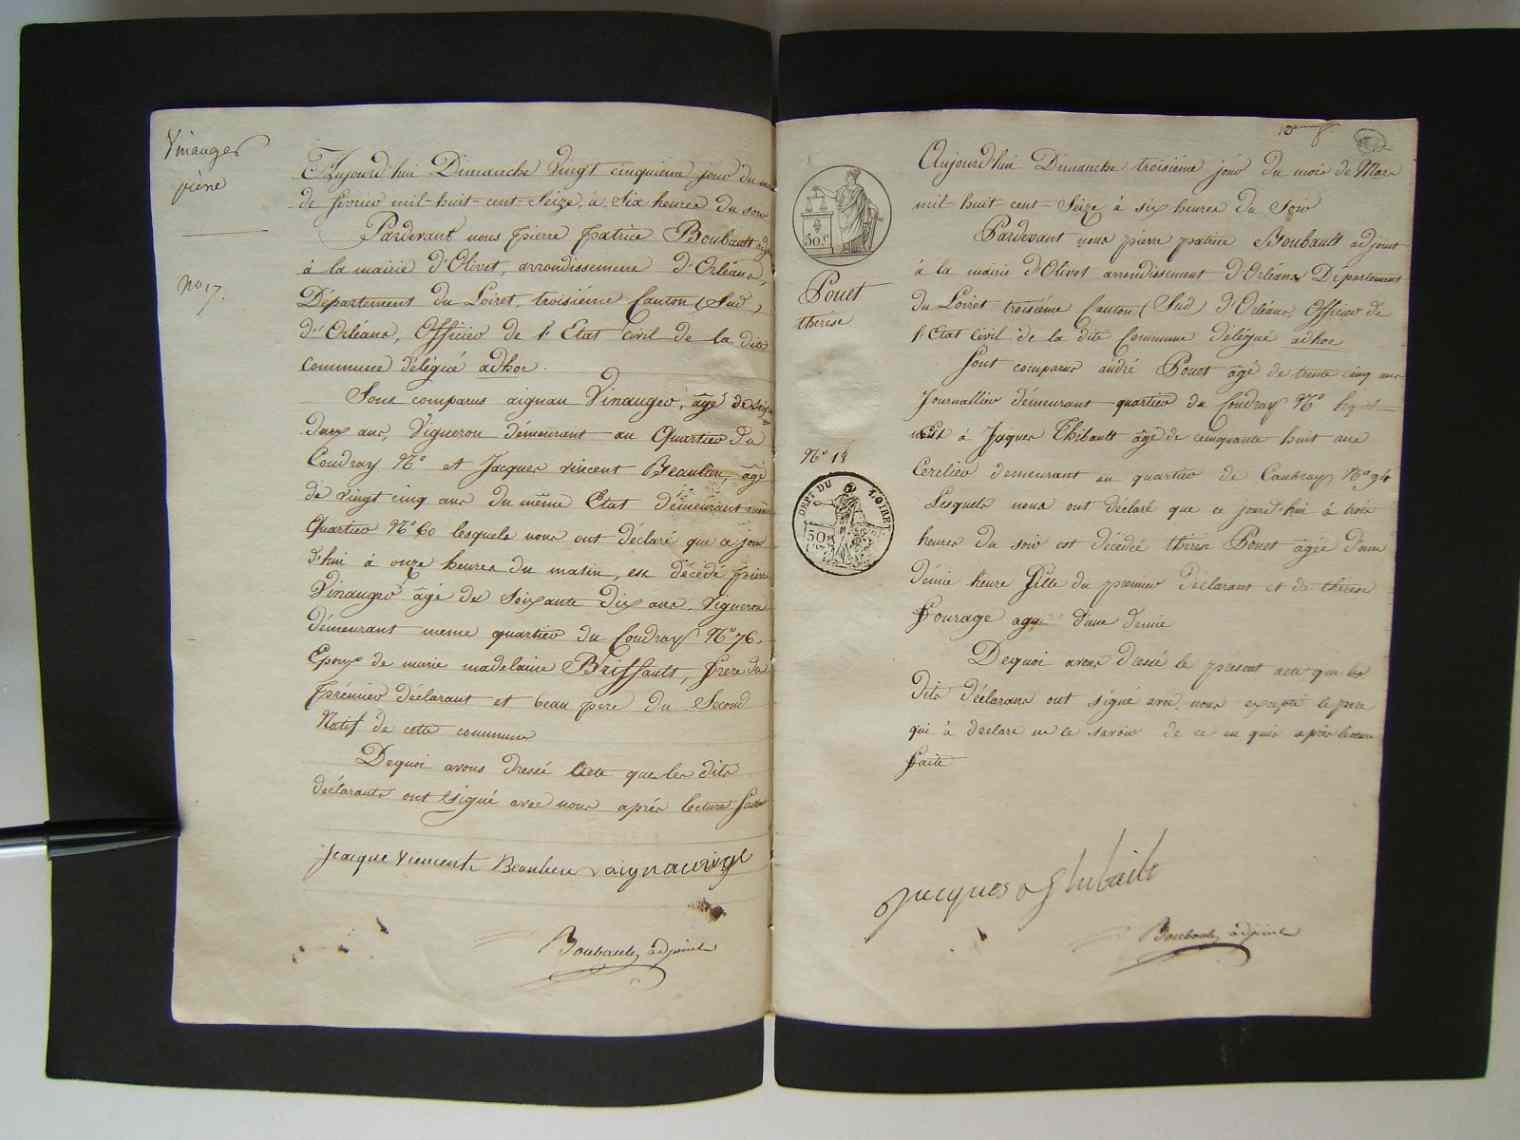 Vinauger
pière
No 17.
Aujourd'hui Dimanche Vingt cinquieme jour du
de fevrier mil-huit-cent-Seize, à Six heures du soir
Pardevant nous pierre patrice Boubault
à la mairie d'Olivet, arrondissement d'Orléans,
Département du Loiret, troisième Canton (Sud,
d'Orléans, Officier de l'Etat Civil de la dite
commune délégué adhoc.
Sont comparus aignan Vinauger, âgé de
deux ans, Vigneron démeurant au Quartier du
Coudray No et Jacques vincent Beaulieu, âgé
de vingt cinq ans du même Etat démeurant
Quartier No 60 lesquels nous ont déclaré que ce jour
d'hui à onze heures du matin, est décédé pierre
Vinauger âgé de Soixante dix ans, Vigneron
démeurant meme quartier du Coudray No 76.
Epoux de marie madelaine Briffault, frere du
prémier déclarant et beau pere du Second
Natif de cette commune
Dequoi avons dressé acte que les dits
déclarants ont signé avec nous après lecture faite
Jacque viencent Beaulieu aignan
Boubault adjoint
Pouet
therese
No 18
50 c
DEPT DU LOIRET
50
Aujourd'hui Dimanche troisième jour du mois de Mars
mil-huit-cent-Seize à six heures du Soir
Pardevant nous pierre patrice Boubault adjoint
à la mairie d'Olivet arrondissement d'Orléans Département
du Loiret troisième Canton (Sud) d'Orléans Officier de
l'Etat Civil de la dite Commune délégué adhoc
Sont comparus andré Pouet âgé de trente cinq ans
Journallier démeurant quartier du Coudray No
et Jaques Thibault âgé de cinquante huit ans
Cerclier demeurant au quartier de No 94
Lesquels nous ont déclaré que ce jourd'hui à trois
heures du soir est décédée therese Pouet âgée d'une
démie heure fille du premier déclarant et de therese
fourage agée d'une demie
Dequoi avons dressé le present acte que les
dits déclarans ont signé avec nous excepté le pere
qui à declaré ne le savoir de ce enquis après lecture
faite
Jacques Thibault
Boubault adjoint